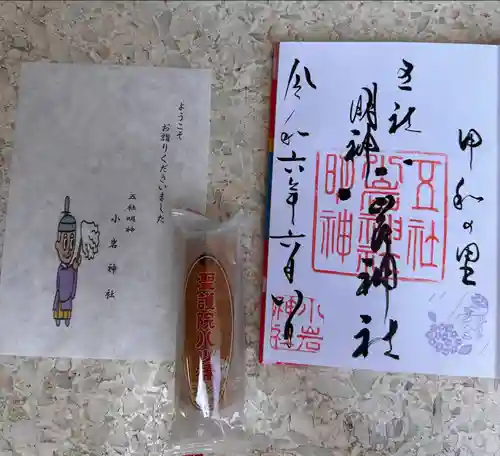 ようこそ
お詣りくださいました
五社明神
小岩神社
聖護院八ツ橋
甲和の里
五社
明神
小岩神社
令和六年六月
五社
明神
小岩
神社